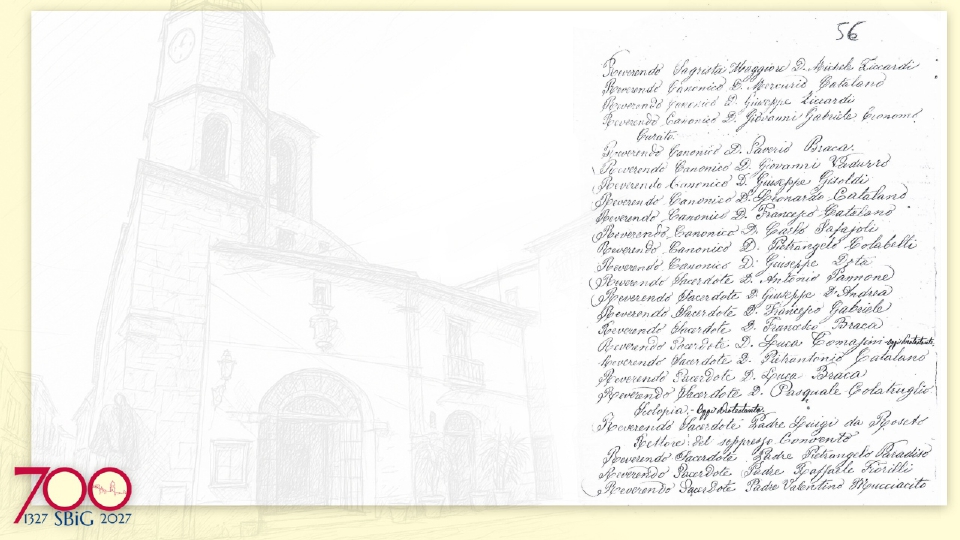 56
Reverendo Sagrista Maggiore D. Michele Ziccardi
Reverendo Canonico D. Mercurio Catalano
Reverendo Canonico D. Giuseppe Ziccardi
Reverendo Canonico D. Giovanni Gabriele Econom:
Curato.
Reverendo Canonico D. Saverio Braca.
Reverendo Canonico D. Giovanni
Reverendo Canonico D. Giuseppe Grisoldi
Reverendo Canonico D. Leonardo Catalano
Reverendo Canonico D. Francesco Catalano
Reverendo Canonico D. Carlo
Reverendo Canonico D. Pietrangelo Colabelli
Reverendo Canonico D. Giuseppe Dota
Reverendo Sacerdote D. Antonio Pannone
Reverendo Sacerdote D. Giuseppe D'Andrea
Reverendo Sacerdote D. Francesco Gabriele
Reverendo Sacerdote D. Francesco Braca
Reverendo Sacerdote D. Luca Tomasini oggi Protestante
Reverendo Sacerdote D. Pietrantonio Catalano
Reverendo Sacerdote D. Luca Braca
Reverendo Sacerdote D. Pasquale Colatruglio
Scolopia - Oggi Protestante.
Reverendo Sacerdote Padre Luigi da Roseto
Rettore del soppresso Convento
Reverendo Sacerdote Padre Pietrangelo Paradiso
Reverendo Sacerdote Padre Raffaele Fiorilli
Reverendo Sacerdote Padre Valentino Mucciacito
700
1327 SBiG 2027